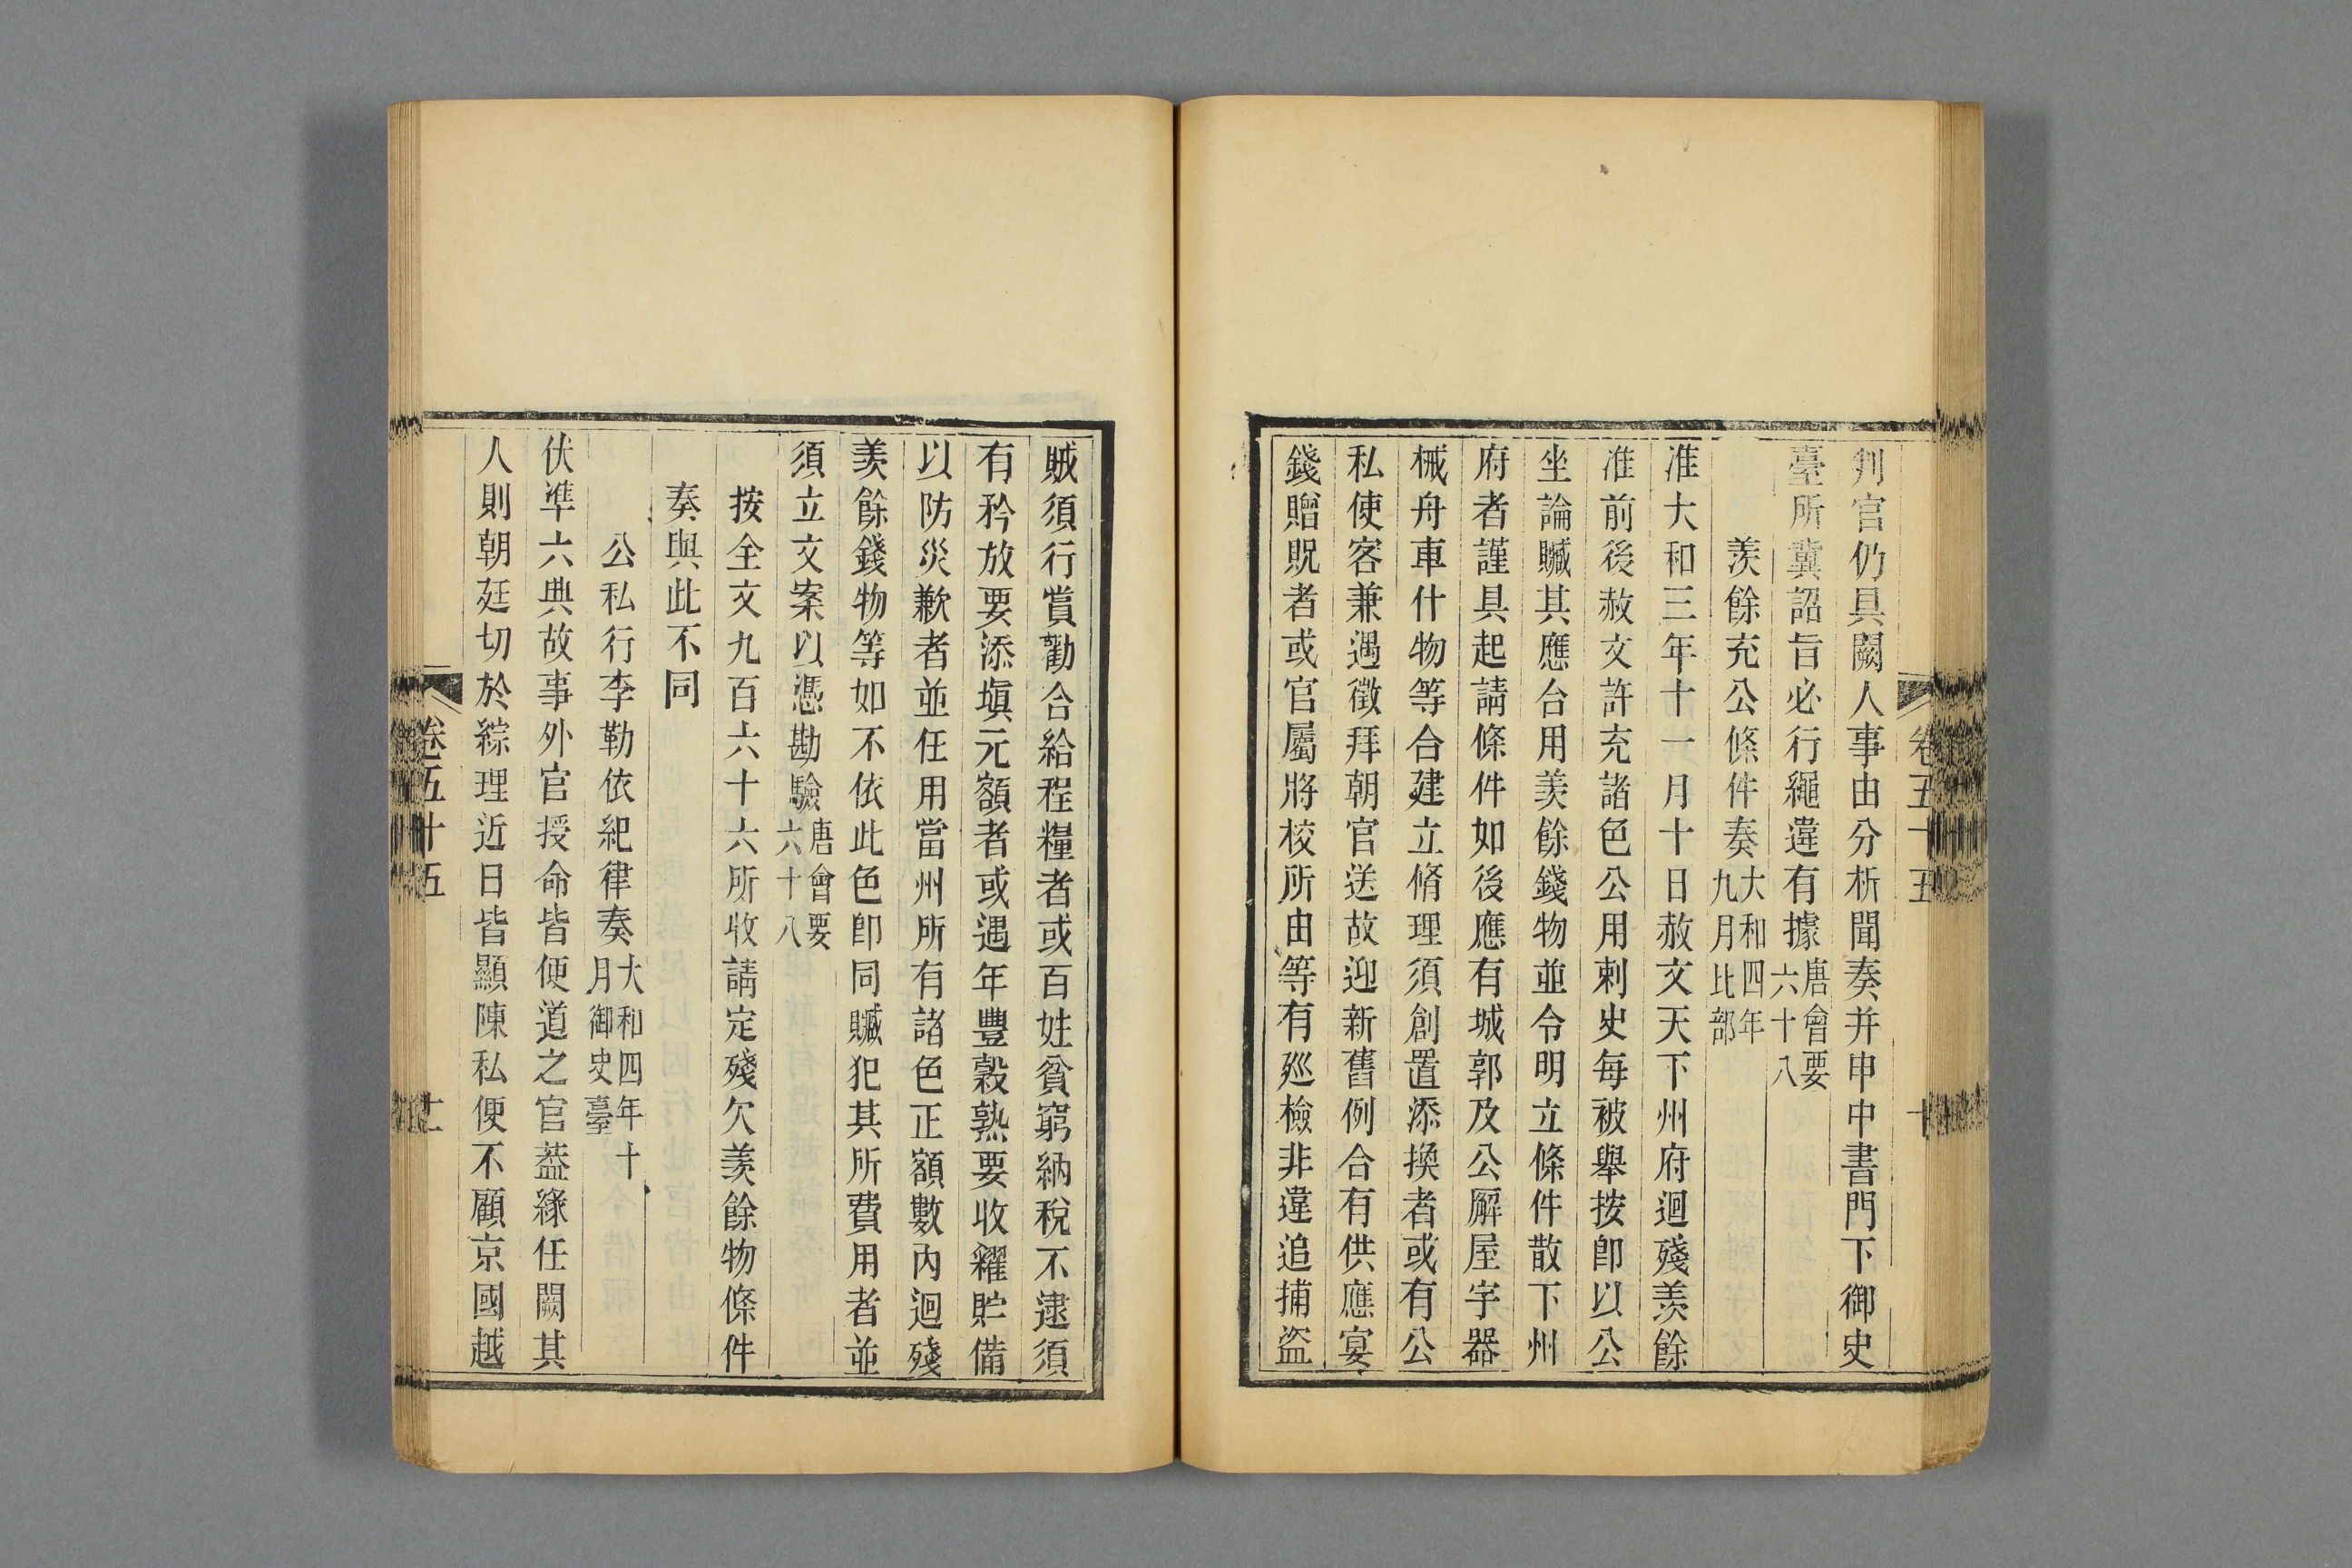 判官仍具闕人事由分析聞奏并申中書門下御史
臺所冀詔旨必行繩違有據唐會要六十八
羨餘充公條件奏大和四年九月比部
准大和三年十一月十日赦文天下州府迴殘羨餘
准前後赦文許充諸色公用刺史每被舉按卽以公
坐論贓其應合用羨餘錢物並令明立條件散下州
府者謹具起請條件如後應有城郭及公廨屋宇器
械舟車什物等合建立脩理須創置添換者或有公
私使客兼遇徵拜朝官送故迎新舊例合有供應宴
錢贈貺者或官屬將校所由等有廵檢非違追捕盜
賊須行賞勸合給程糧者或百姓貧窮納稅不逮須
有矜放要添塡元額者或遇年豐穀熟要收糴貯備
以防災歉者並任用當州所有諸色正額數內迴殘
羨餘錢物等如不依此色卽同贓犯其所費用者並
須立文案以憑勘驗唐會要六十八
按全文九百六十六所收請定殘欠羨餘物條件
奏與此不同
公私行李勒依紀律奏大和四年十月御史臺
伏準六典故事外官授命皆便道之官葢緣任闕其
人則朝廷切於綜理近日皆顯陳私便不顧京國越
卷五十五
卷五十五